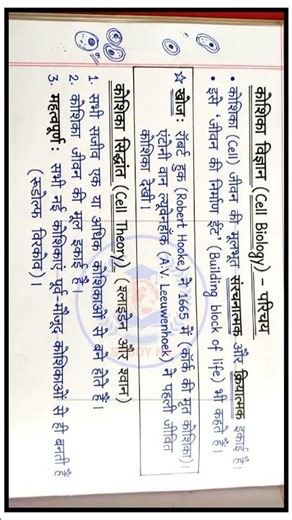 कोशिका विज्ञान (Cell Biology) – परिचय
• कोशिका (Cell) जीवन की मूलभूत संरचनात्मक और क्रियात्मक इकाई है।
• इसे 'जीवन की निर्माण ईंट' (Building block of life) भी कहते हैं।
☆ खोज: रॉबर्ट हुक (Robert Hooke) ने 1665 में (कॉर्क की मृत कोशिका)।
एंटोनी वान ल्यूवेनहॉक (A.V. Leeuwenhoek) ने पहली जीवित
कोशिका देखी।
कोशिका सिद्धांत (Cell Theory) (श्लाइडेन और श्वान)
1. सभी सजीव एक या अधिक कोशिकाओं से बने होते हैं।
2. कोशिका जीवन की मूल इकाई है।
3. महत्वपूर्ण: सभी नई कोशिकाएं पूर्व-मौजूद कोशिकाओं से ही बनती हैं
(रूडोल्फ विरकोव)।